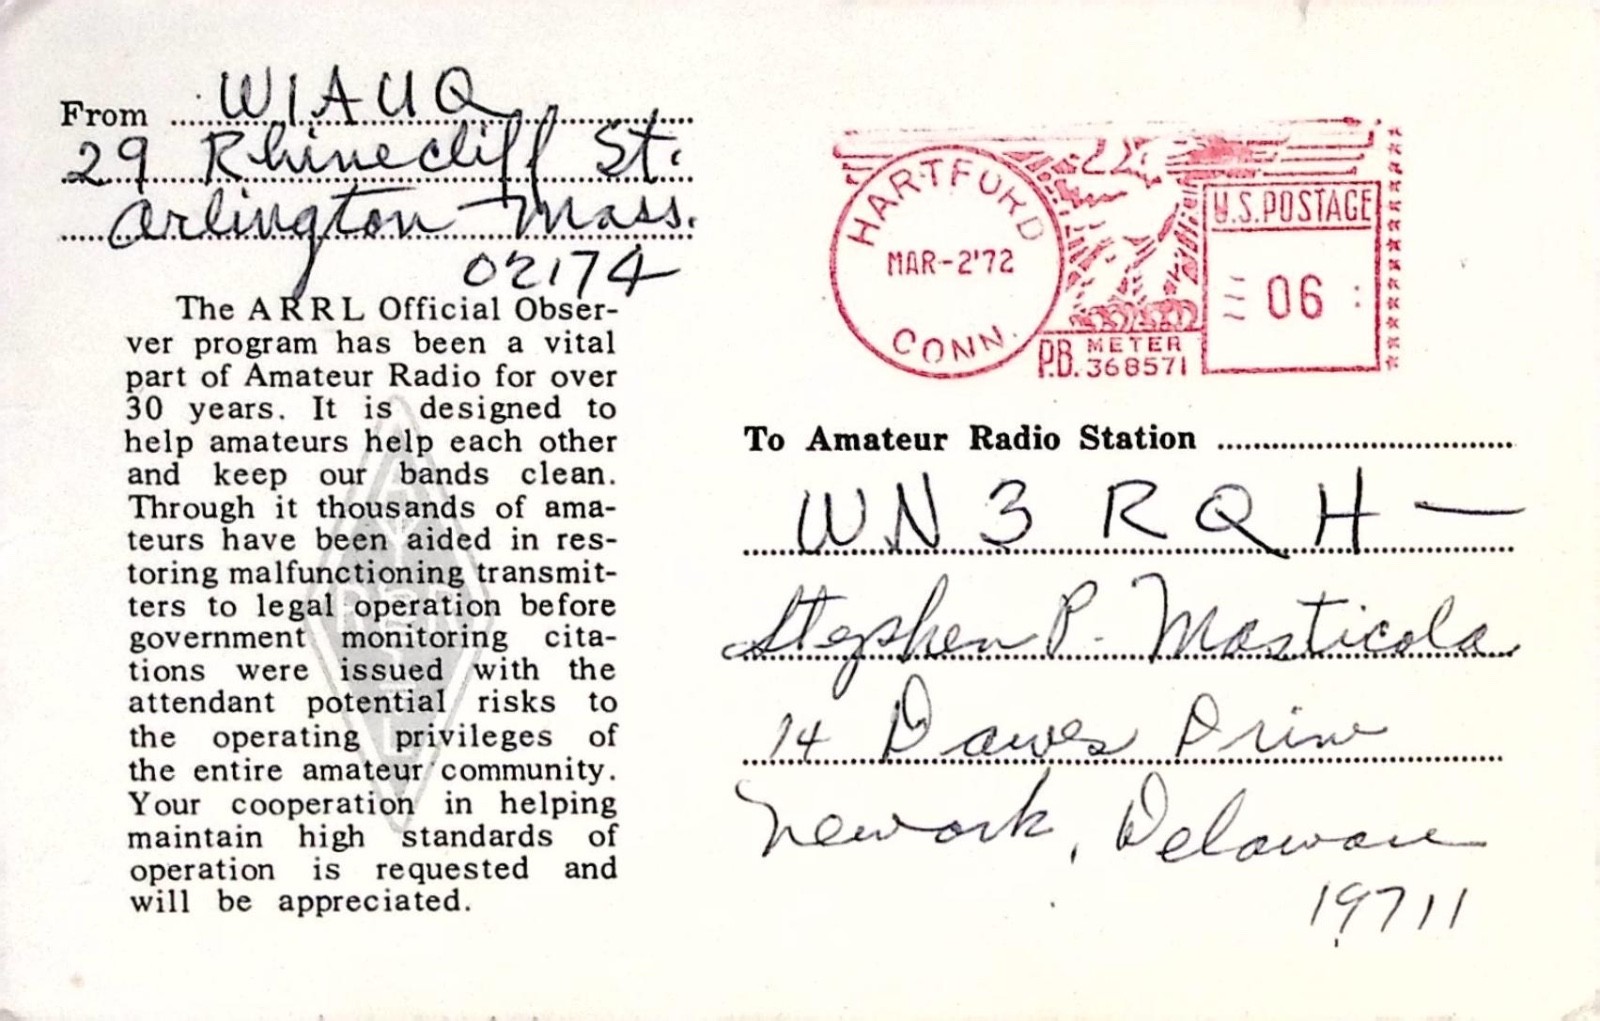 From W1AUQ
29 Rhinecliff St.
Arlington Mass.
02174
The ARRL Official Obser-
ver program has been a vital
part of Amateur Radio for over
30 years. It is designed to
help amateurs help each other
and keep our bands clean.
Through it thousands of ama-
teurs have been aided in res-
toring malfunctioning transmit-
ters to legal operation before
government monitoring cita-
tions were issued with the
attendant potential risks to
the operating privileges of
the entire amateur community.
Your cooperation in helping
maintain high standards of
operation is requested and
will be appreciated.
HARTFORD
MAR-2'72
CONN.
P.B. METER
368571
U.S. POSTAGE
06
To Amateur Radio Station
WN3RQH—
Stephen P. Masticola
14 Dawes Drive
Newark, Delaware
19711